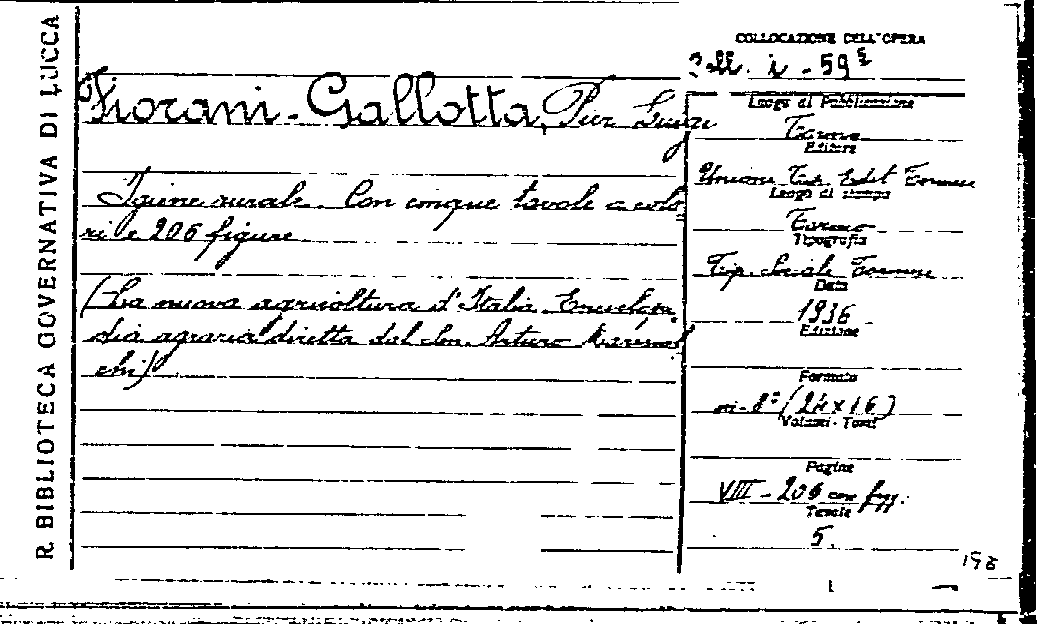 R. BIBLIOTECA GOVERNATIVA DI LUCCA
Fiorani-Gallotta, Pier Luigi
Igiene rurale. Con cinque tavole a colo
ri e 206 figure
(La nuova agricoltura d'Italia. Enciclope
dia agraria diretta dal Sen. Arturo Marescal
chi)
COLLOCAZIONE DELL'OPERA
Coll. i - 59
Luogo di Pubblicazione
Torino
Editore
Unione Tip. Edit. Torinese
Luogo di stampa
Torino
Tipografia
Tip. Sociale Torinese
Data
1936
Edizione
Formato
in-8° (24 x 16)
Volumi - Tomi
Pagine
VIII - 206 con figg.
Tavole
5.